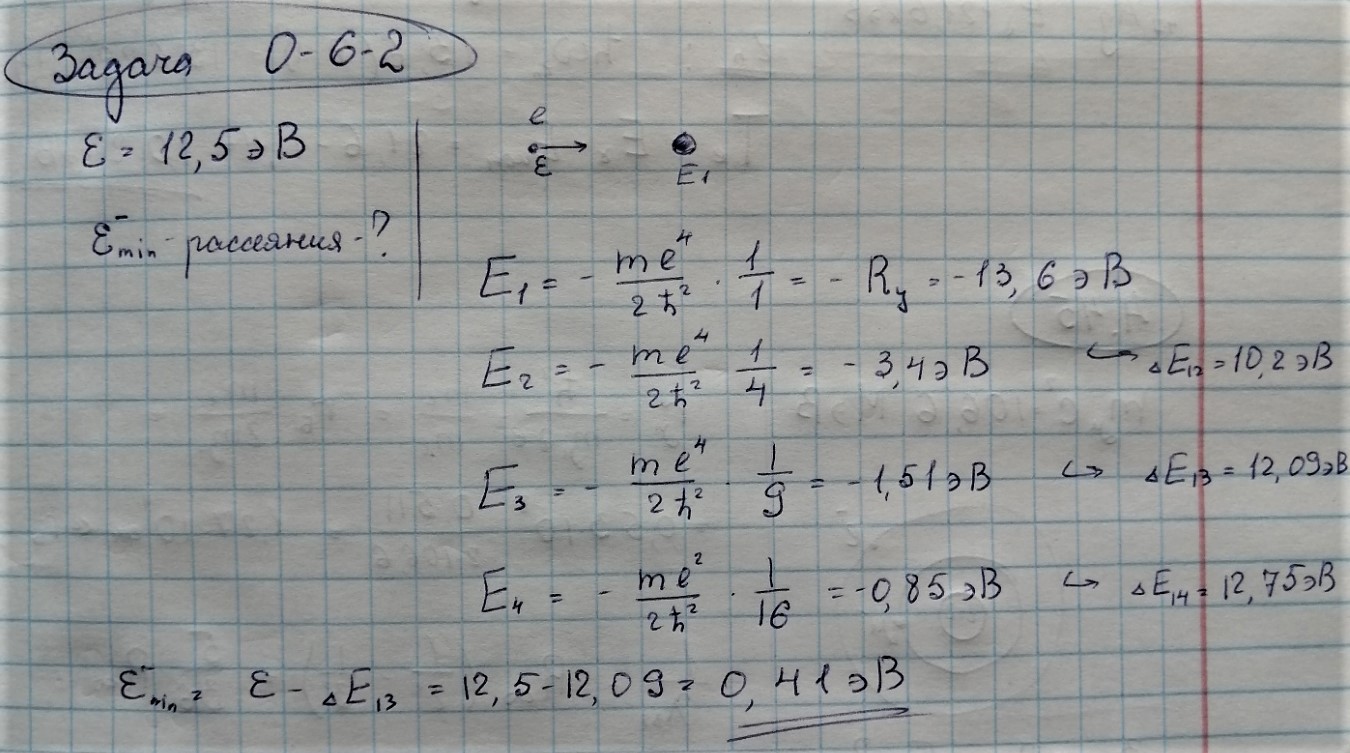 Задача 0-6-2
ε = 12,5 эВ
ε⁻min рассеяния - ?
e
ε
E₁
E₁ = - me⁴/2ħ² · 1/1 = - Ry = -13,6 эВ
E₂ = - me⁴/2ħ² · 1/4 = - 3,4 эВ ↪ ΔE₁₂ = 10,2 эВ
E₃ = - me⁴/2ħ² · 1/9 = -1,51 эВ ↪ ΔE₁₃ = 12,09 эВ
E₄ = - me²/2ħ² · 1/16 = -0,85 эВ ↪ ΔE₁₄ = 12,75 эВ
ε⁻min = ε - ΔE₁₃ = 12,5 - 12,09 = 0,41 эВ